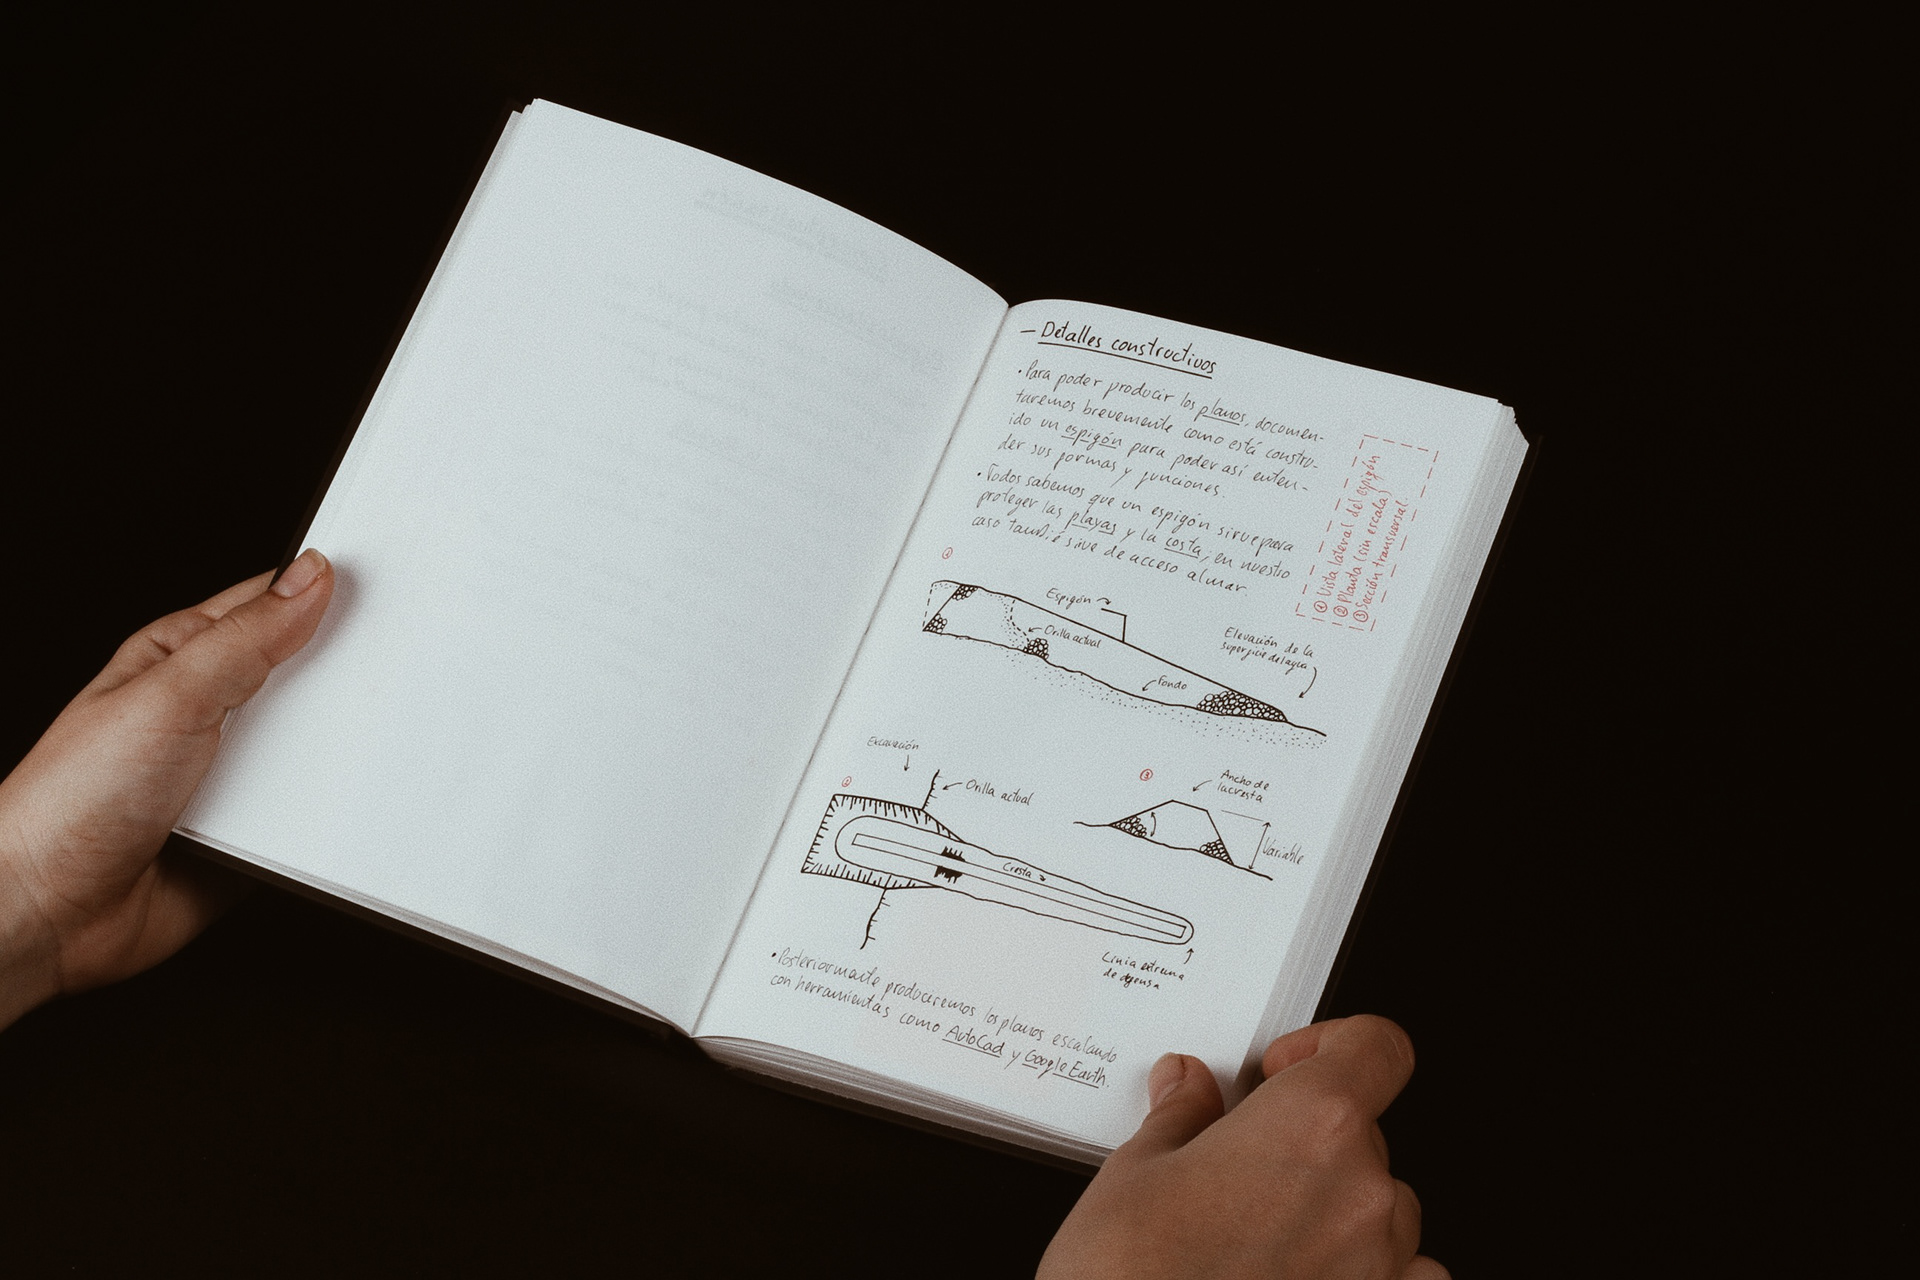 – Detalles constructivos
• Para poder producir los planos, documen-
taremos brevemente como está constru-
ido un espigón para poder así enten-
der sus formas y funciones.
• Todos sabemos que un espigón sirve para
proteger las playas y la costa, en nuestro
caso también sive de acceso al mar.
① Vista lateral del espigón
② Planta (sin escala)
③ Sección transversal.
①
Espigón
Orilla actual
Fondo
Elevación de la
superficie del agua
Excavación
②
Orilla actual
Cresta
Linia extrema
de defensa
③
Ancho de
la cresta
Variable
• Posteriormente produciremos los planos escalando
con herramientas como AutoCad y Google Earth.